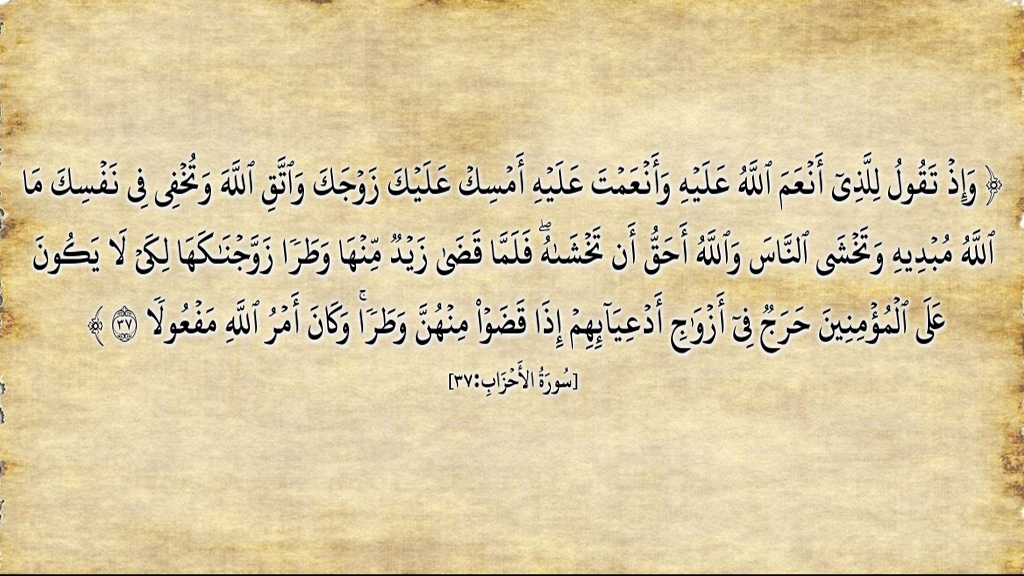 ﴿ وَإِذۡ تَقُولُ لِلَّذِيٓ أَنۡعَمَ ٱللَّهُ عَلَيۡهِ وَأَنۡعَمۡتَ عَلَيۡهِ أَمۡسِكۡ عَلَيۡكَ زَوۡجَكَ وَٱتَّقِ ٱللَّهَ وَتُخۡفِي فِي نَفۡسِكَ مَا
ٱللَّهُ مُبۡدِيهِ وَتَخۡشَى ٱلنَّاسَ وَٱللَّهُ أَحَقُّ أَن تَخۡشَىٰهُۖ فَلَمَّا قَضَىٰ زَيۡدٞ مِّنۡهَا وَطَرٗا زَوَّجۡنَٰكَهَا لِكَيۡ لَا يَكُونَ
عَلَى ٱلۡمُؤۡمِنِينَ حَرَجٞ فِيٓ أَزۡوَٰجِ أَدۡعِيَآئِهِمۡ إِذَا قَضَوۡاْ مِنۡهُنَّ وَطَرٗاۚ وَكَانَ أَمۡرُ ٱللَّهِ مَفۡعُولٗا ٣٧ ﴾
[سُورَةُ الأَحۡزَابِ:٣٧]